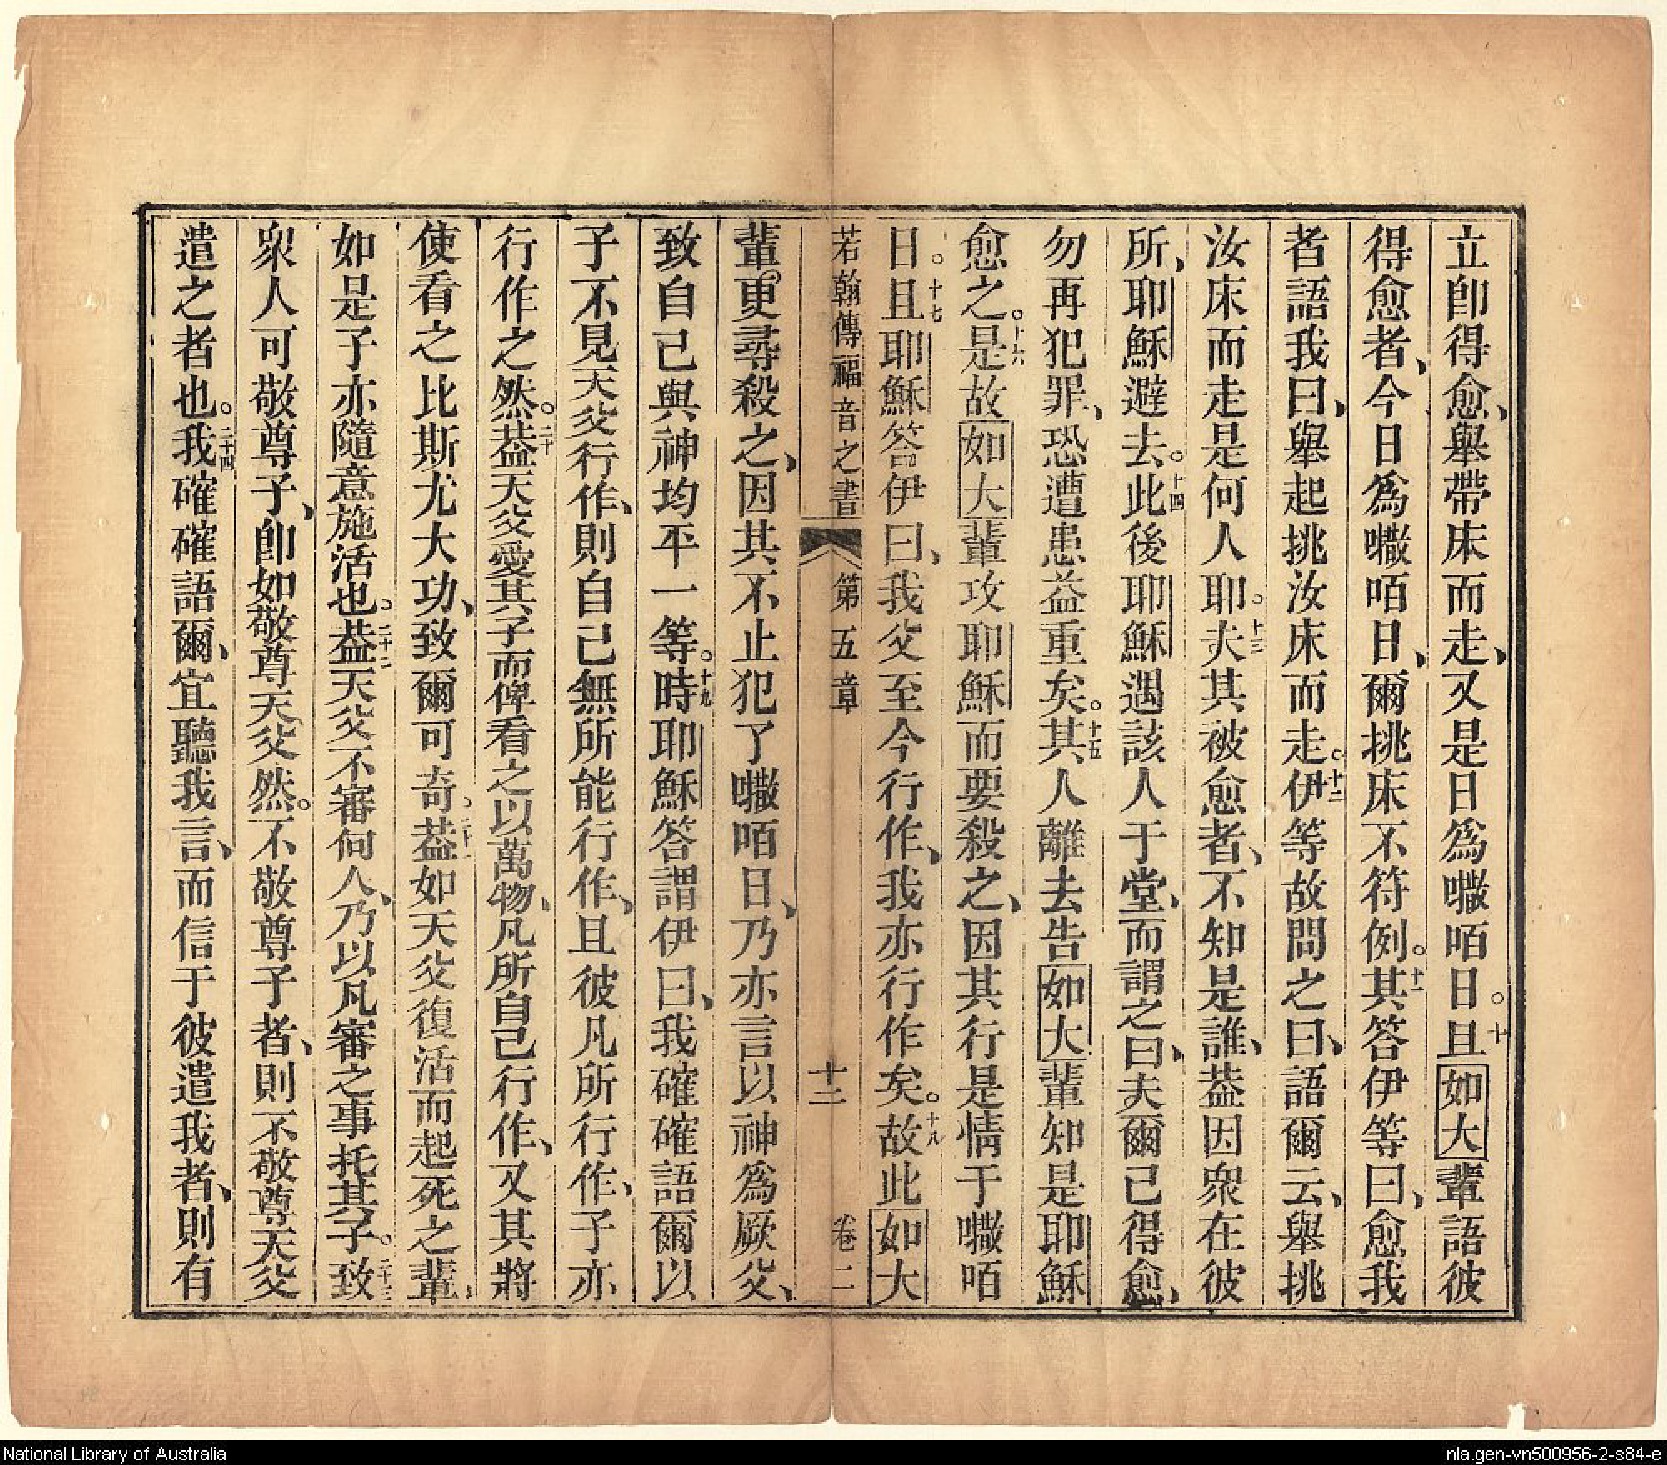 立卽得愈、舉帶床而走、又是日爲𡂿咟日。十且如大輩語彼
得愈者、今日爲𡂿咟日、爾挑床不符例。十一其答伊等曰、愈我
者語我曰、舉起挑汝床而走。十二伊等故問之曰、語爾云、舉挑
汝床而走是何人耶。十三夫其被愈者、不知是誰、葢因衆在彼
所、耶穌避去。十四此後耶穌遇該人于堂、而謂之曰、夫爾已得愈、
勿再犯罪、恐遭患益重矣。十五其人離去告如大輩知是耶穌
愈之。十六是故如大輩攻耶穌而要殺之、因其行是情于𡂿咟
日。十七且耶穌答伊曰、我父至今行作、我亦行作矣。十八故此如大
若翰傳福音之書 第五章 十二 卷二
輩更尋殺之、因其不止犯了𡂿咟日、乃亦言以神爲厥父、
致自己與神均平一等。十九時耶穌答謂伊曰、我確確語爾以
子不見天父行作、則自己無所能行作、且彼凡所行作、子亦
行作之然。二十葢天父愛其子而俾看之以萬物、凡所自己行作、又其將
使看之比斯尤大功、致爾可奇。二十一葢如天父復活而起死之輩、
如是子亦隨意施活也。二十二葢天父不審何人、乃以凡審之事托其子。二十三致
衆人可敬尊子、卽如敬尊天父然。不敬尊子者、則不敬尊天父
遣之者也。二十四我確確語爾、宜聽我言、而信于彼遣我者、則有
National Library of Australia
nla.gen-vn500956-2-s84-e